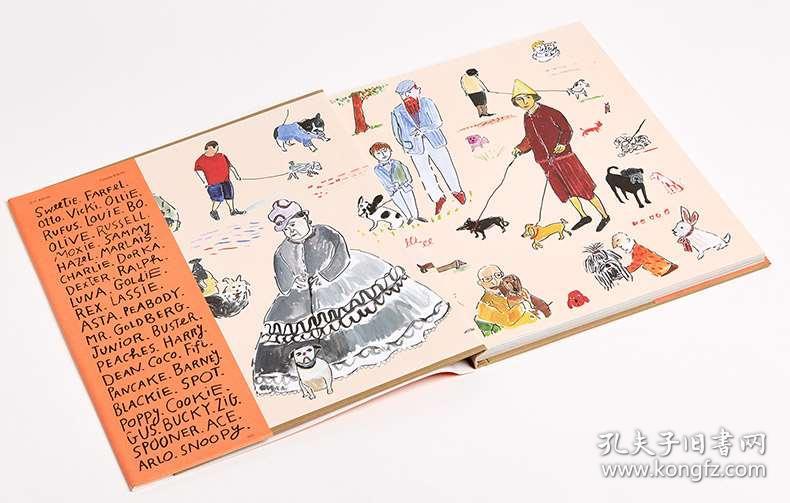 SWEETIE. FARFEL.
OTTO. VICKI. OLLIE.
RUFUS. LOUIE. BO.
OLIVE. RUSSELL.
MOXIE. SAMMY.
HAZEL. MARLAIS.
CHARLIE. DORCA.
DEXTER. RALPH.
LUNA. GOLDIE.
REX. LASSIE.
ASTA. PEABODY.
MR. GOLDBERG.
JUNIOR. BUSTER.
PEACHES. HARRY.
DEAN. COCO. FIFI.
PANCAKE. BARNEY.
BLACKIE. SPOT.
POPPY. COOKIE.
GUS. BUCKY. ZIG.
SPOONER. ACE.
ARLO. SNOOPY.
孔夫子旧书网
www.kongfz.com